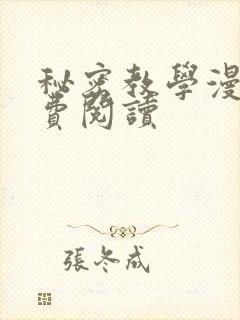 秘密教學漫
費閱讀
張冬成